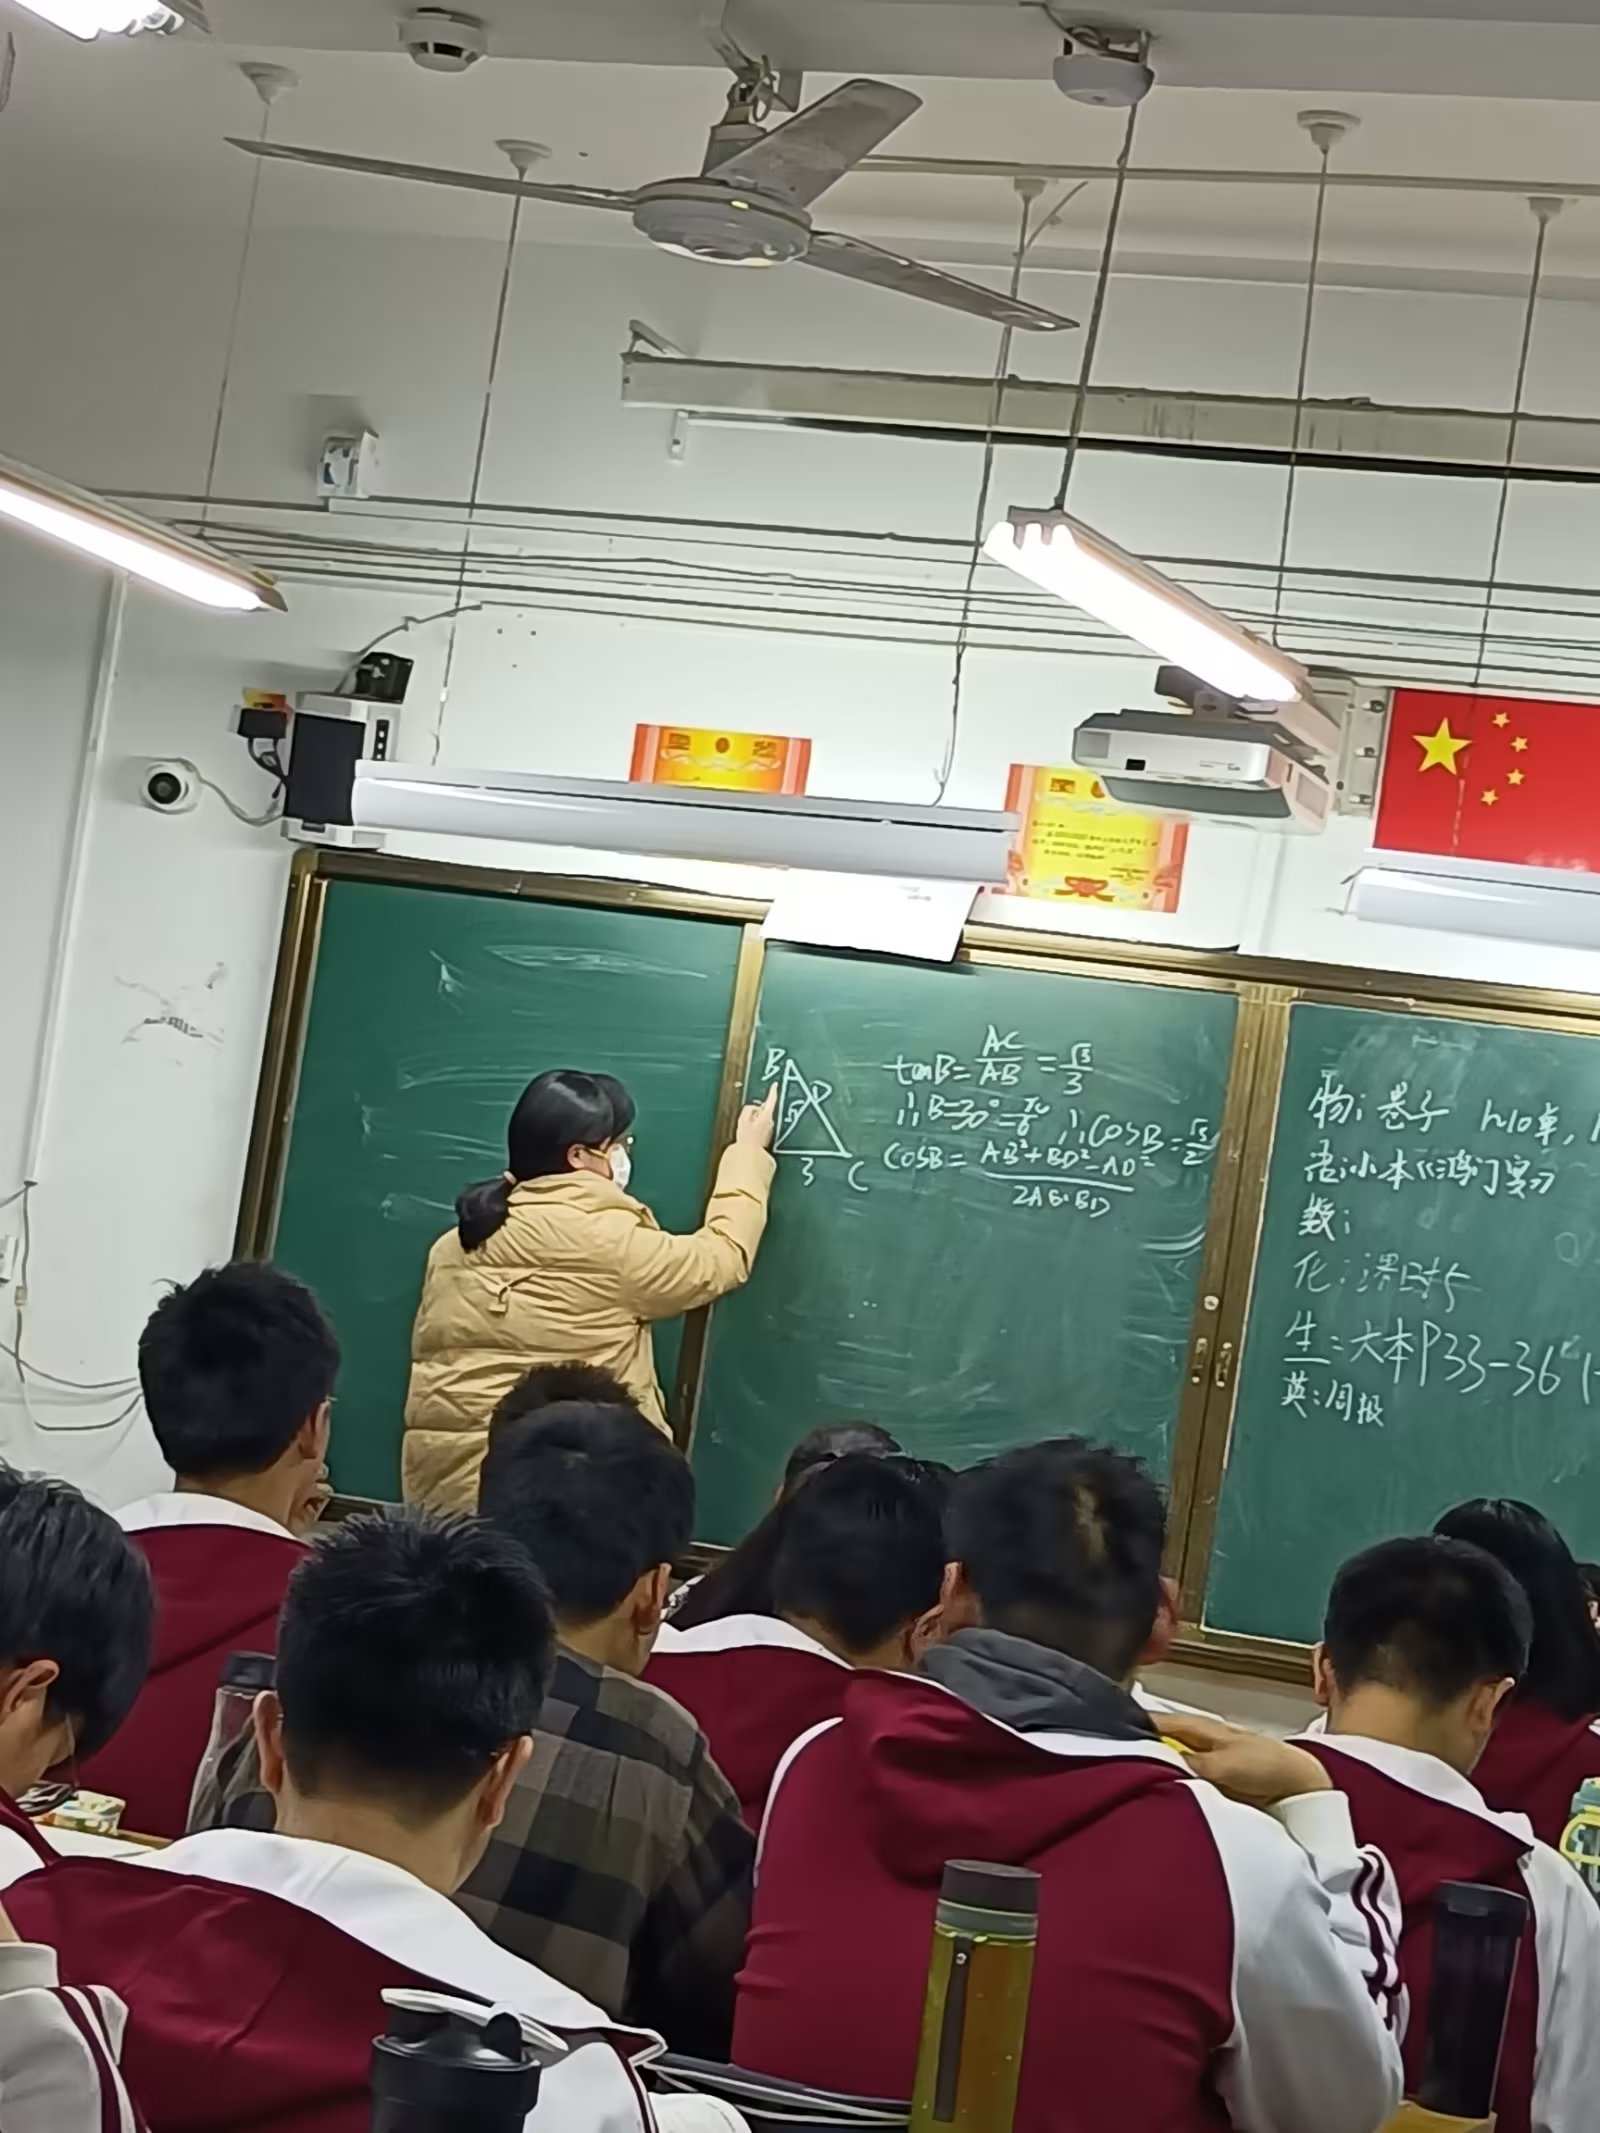 B
D
3
C
tanB = AC/AB = √3/3
∴B=30°=π/6 ∴cosB=√3/2
cosB = AB²+BD²-AD² / 2AB·BD
物: 卷子
语:小本《鸿门宴》
数:
化:课时5
生:大本P33-36
英:周报